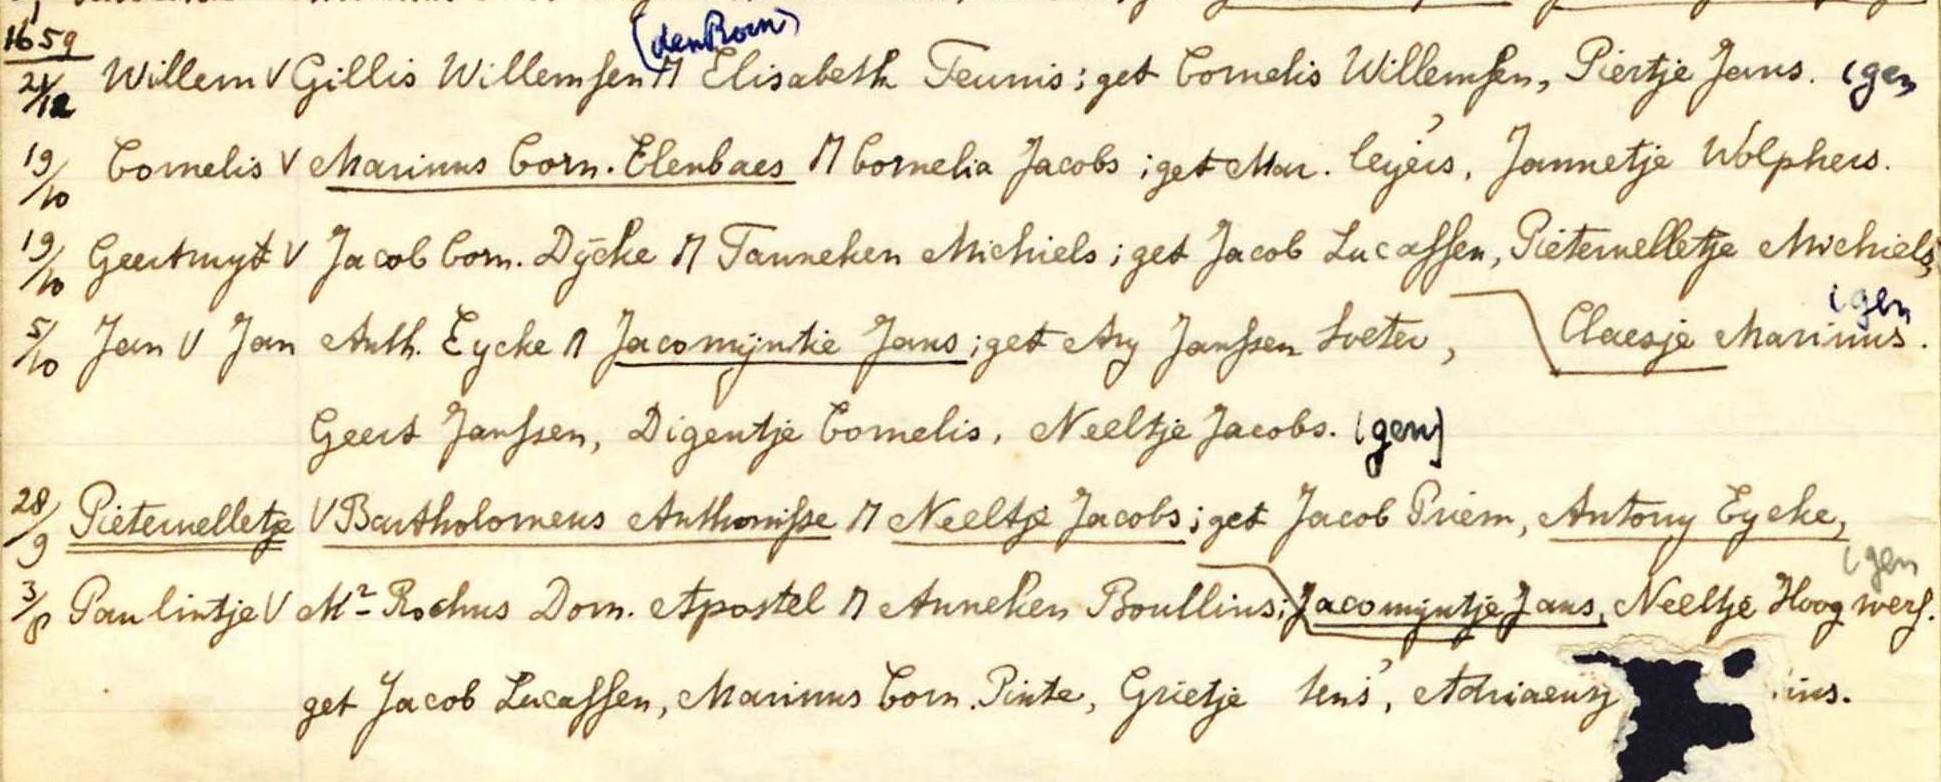 (den Boen)
1659
21/12 Willem V Gillis Willemssen M Elisabeth Teunis; get Cornelis Willemssen, Piertje Jans. (gen
19/10 Cornelis V Marinus Corn. Elenbaes M Cornelia Jacobs; get Mar. Leijers, Jannetje Wolphers.
19/10 Geertruyt V Jacob Corn. Dÿcke M Tanneken Michiels; get Jacob Lucassen, Pieternelletje Michiels,
(gen
5/10 Jan V Jan Anth. Eycke M Jacomijntie Jans; get Ary Janssen Soeter, Claesje Marinus.
Geert Janssen, Digentje Cornelis, Neeltje Jacobs. (gen)
28/9 Pieternelletje V Bartholomeus Anthonisse M Neeltje Jacobs; get Jacob Priem, Antony Eycke,
(gen
3/8 Paulintje V Mr Rochus Dom. Apostel M Anneken Boullins; Jacomijntje Jans, Neeltje Hoogwerf.
get Jacob Lucassen, Marinus Corn. Pinte, Grietje